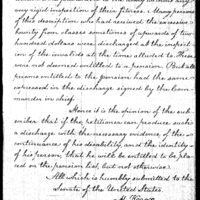 any rigid inspection of their fitness. Many persons
of this description who had received the excessive
bounty from classes sometimes of upwards of two
hundred dollars were discharged at the inspection
of the invalids at the time alluded to. These
was not deemed entitled to a pension. But all
persons entitled to the pension had the same
expressed in the discharge signed by the Com-
mander in chief.
Hence it is the opinion of the sub-
scriber that if the petitioner can produce such
a discharge with the necessary evidence of the
continuance of his disability, and the identity
of his person, that he will be entitled to be pla-
ced on the pension list, but not otherwise.
All which is humbly submitted to the
Senate of the United States.
H. Knox